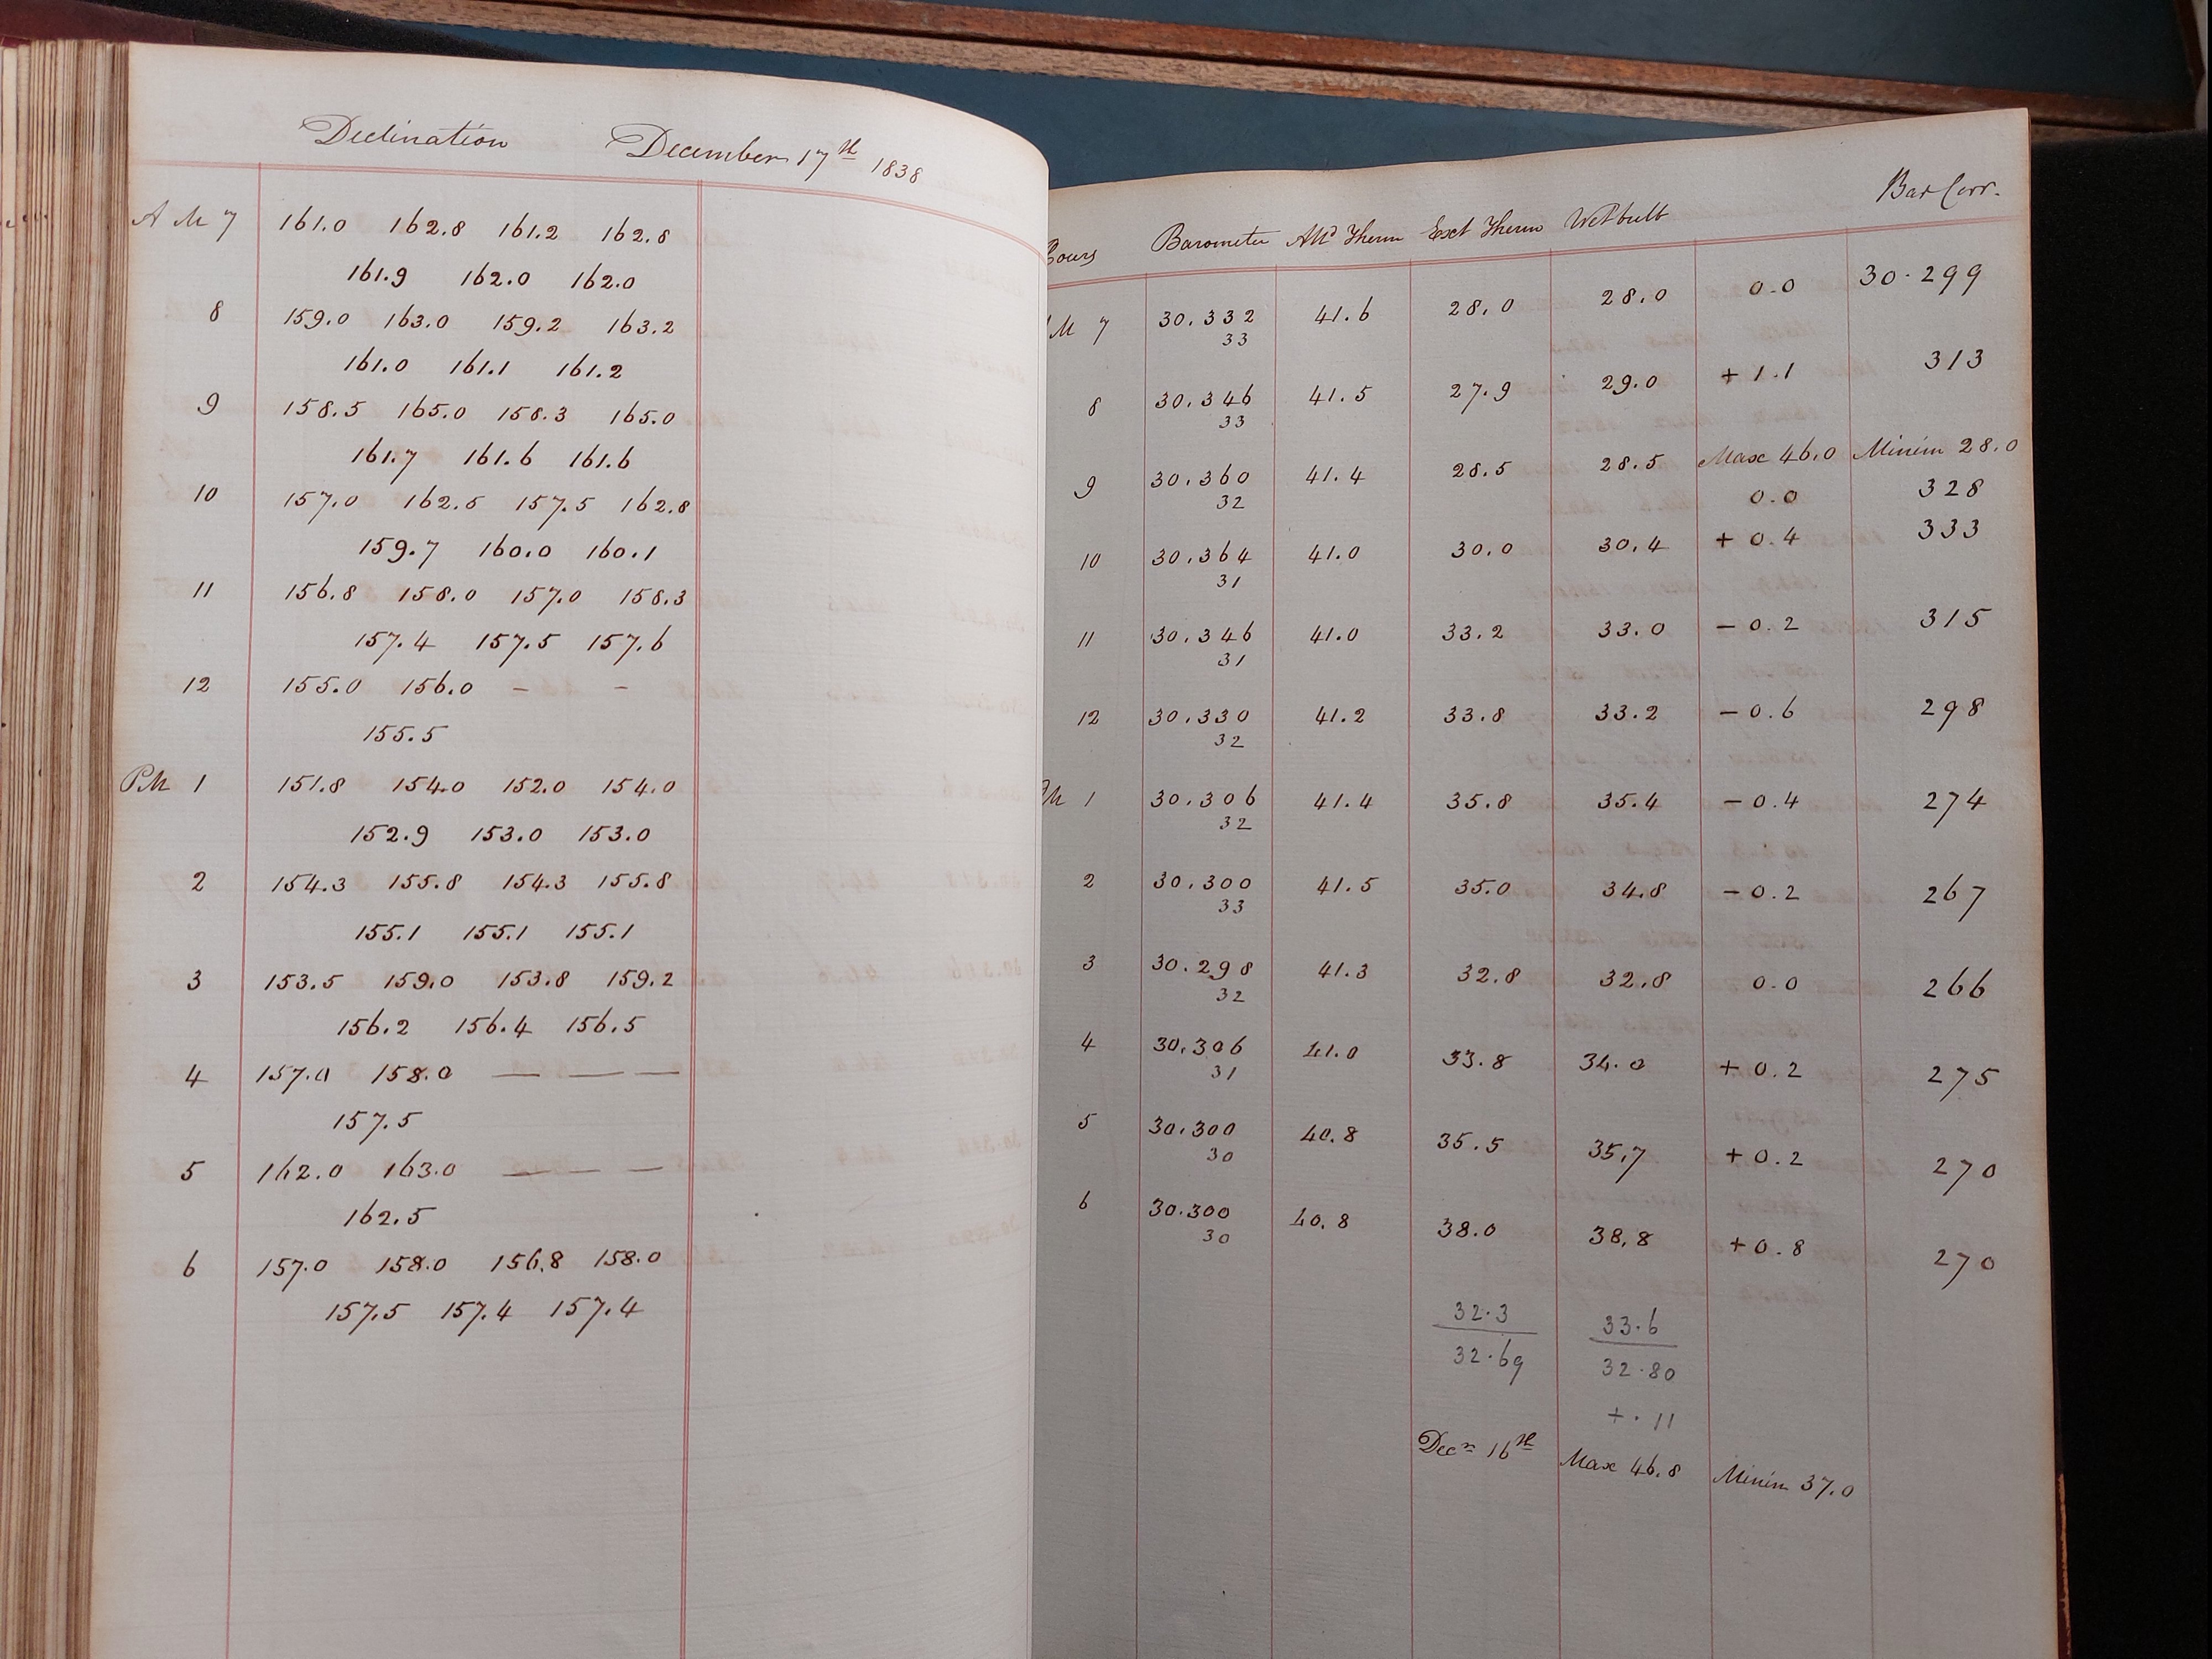 Declination December 17th 1838
A M 7 161.0 162.8 161.2 162.8
161.9 162.0 162.0
8 159.0 163.0 159.2 163.2
161.0 161.1 161.2
9 158.5 165.0 158.3 165.0
161.7 161.6 161.6
10 157.0 162.5 157.5 162.8
159.7 160.0 160.1
11 156.8 158.0 157.0 158.3
157.4 157.5 157.6
12 155.0 156.0 – –
155.5
PM 1 151.8 154.0 152.0 154.0
152.9 153.0 153.0
2 154.3 155.8 154.3 155.8
155.1 155.1 155.1
3 153.5 159.0 153.8 159.2
156.2 156.4 156.5
4 157.0 158.0 — — —
157.5
5 162.0 163.0 — — —
162.5
6 157.0 158.0 156.8 158.0
157.5 157.4 157.4
Hours Barometer Attd Therm Ext Therm Wet bulb Bar Corr.
M 7 30.332 41.6 28.0 28.0 0.0 30.299
33
8 30.346 41.5 27.9 29.0 + 1.1 313
33
9 30.360 41.4 28.5 28.5 Max 46.0 Minim 28.0
32 0.0 328
10 30.364 41.0 30.0 30.4 + 0.4 333
31
11 30.346 41.0 33.2 33.0 – 0.2 315
31
12 30.330 41.2 33.8 33.2 – 0.6 298
32
PM 1 30.306 41.4 35.8 35.4 – 0.4 274
32
2 30.300 41.5 35.0 34.8 – 0.2 267
33
3 30.298 41.3 32.8 32.8 0.0 266
32
4 30.306 41.0 33.8 34.0 + 0.2 275
31
5 30.300 40.8 35.5 35.7 + 0.2 270
30
6 30.300 40.8 38.0 38.8 + 0.8 270
30
32.3 33.6
32.69 32.80
+ .11
Decr 16th Max 46.8 Minim 37.0